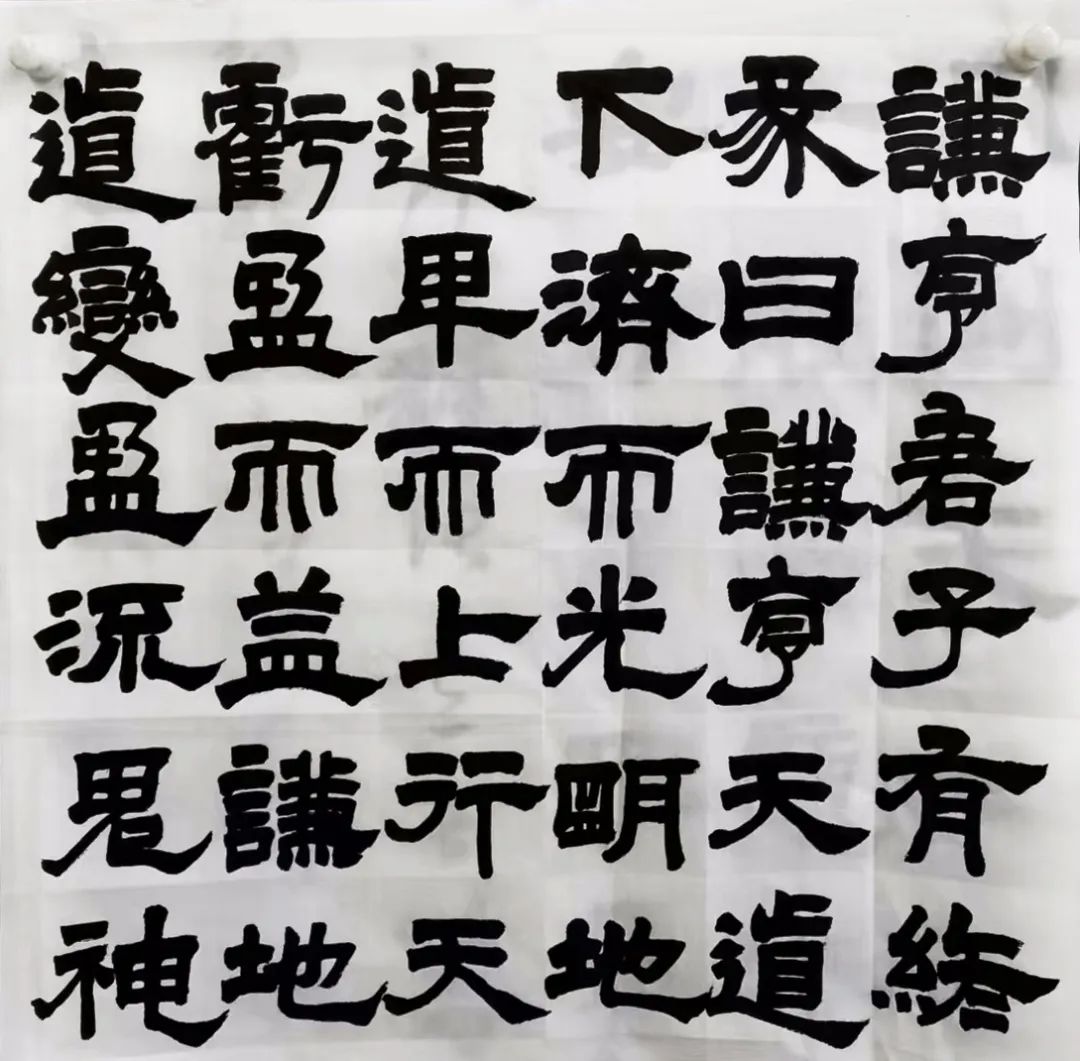 謙亨君子有終
彖曰謙亨天道
下濟而光明地
道卑而上行天
虧盈而益謙地
道變盈流鬼神